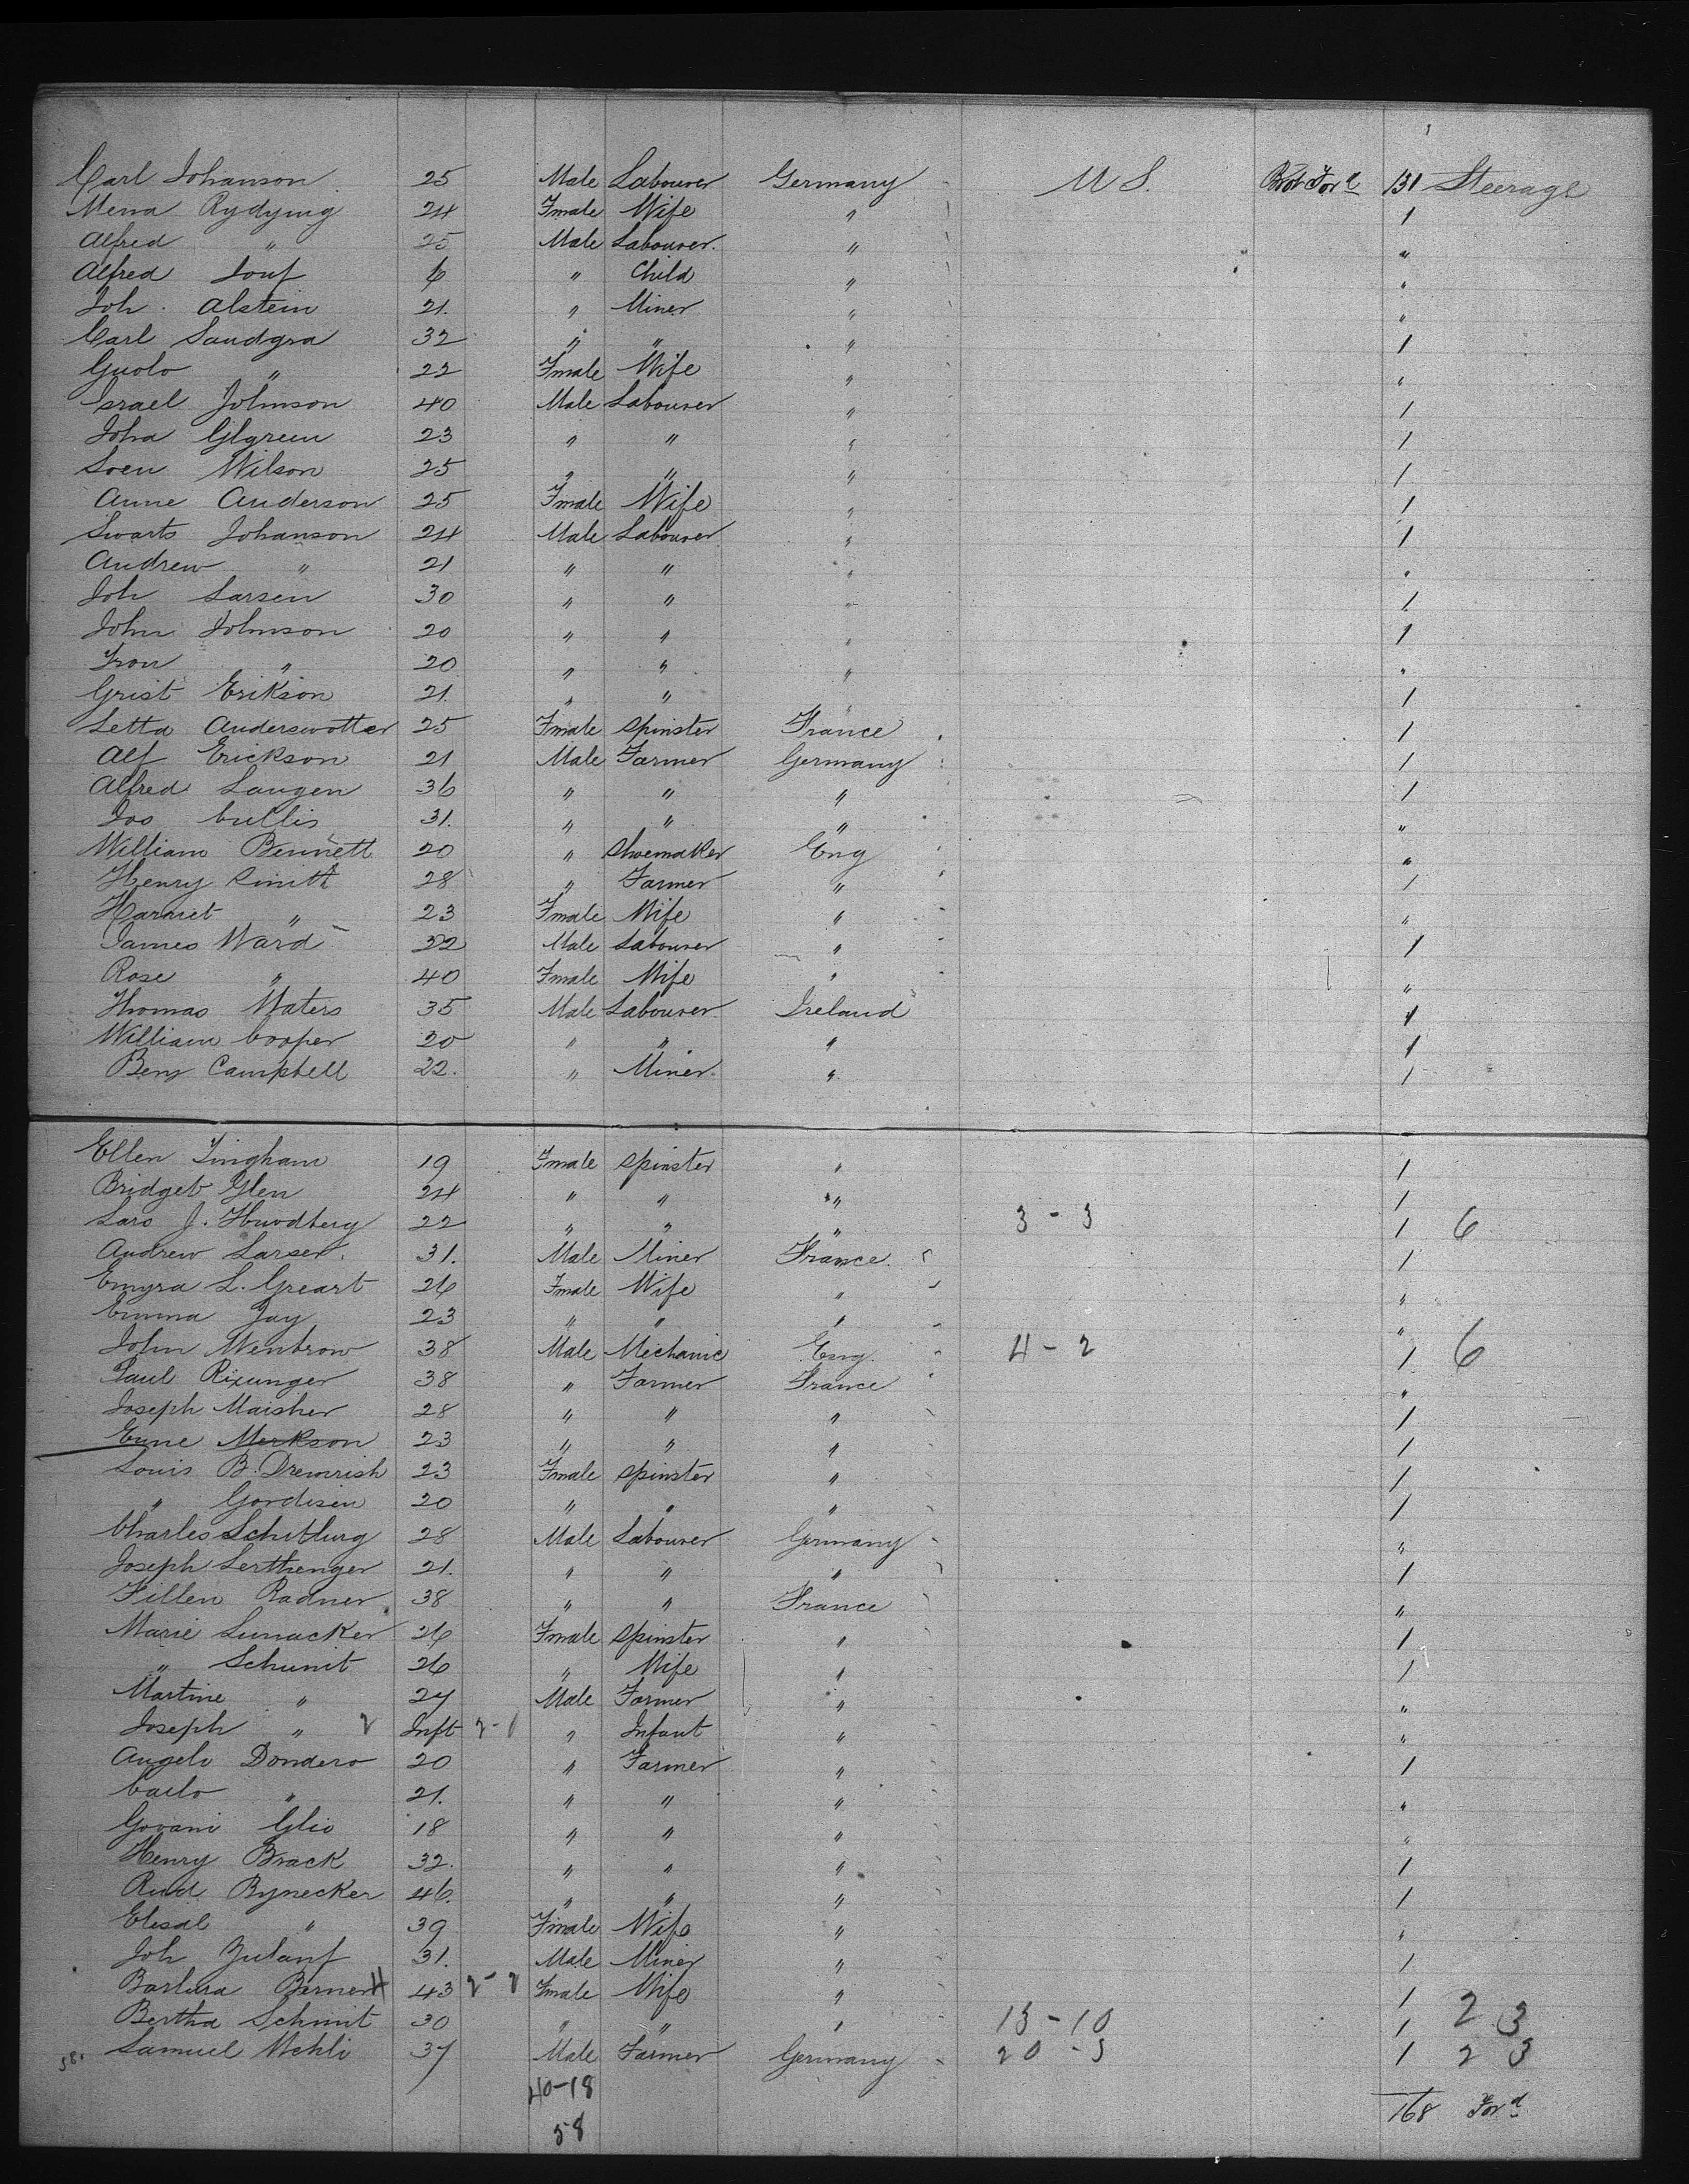 Carl Johanson 25 Male Labourer Germany U S. Brot Ford 131 Steerage
Mena Rydying 24 Fmale Wife " 1
Alfred " 25 Male Labourer. " "
Alfred 6 " Child " "
Joh. Alstein 21. " Miner " "
Carl Sandgra 32 " " " 1
Guolo " 22 Fmale Wife " "
Israel Johnson 40 Male Labourer " 1
Joha Glgreen 23 " " " 1
Soen Wilson 25 " " " 1
Anne Anderson 25 Fmale Wife " 1
Swarts Johanson 24 Male Labourer " 1
Andrew " 21 " " " "
Joh Larsen 30 " " " 1
John Johnson 20 " " " 1
Iron " 20 " " " "
Grist Erikson 21. " " " 1
Letta Anderswotter 25 Fmale Spinster France 1
Alf Erickson 21 Male Farmer Germany 1
Alfred Langen 36 " " " 1
Jos Cullis 31. " " " "
William Bennett 20 " Shoemaker Eng "
Henry Smith 28 " Farmer " 1
Harriet " 23 Fmale Wife " "
James Ward 32 Male Labourer " 1
Rose " 40 Fmale Wife " "
Thomas Waters 35 Male Labourer Ireland 1
William Cooper 20 " " " 1
Benj Campbell 22. " Miner " 1
Ellen Tingham 19 Fmale Spinster " 1
Bridget Glen 24 " " " 1
Lars J. Hundberg 22 " " " 3-3 1 6
Andrew Larsen. 31. Male Miner France 1
Emyra L. Greart 26 Fmale Wife " "
Emma Jay 23 " " " "
John Wentrow 38 Male Mechanic Eng. 4-2 1 6
Paul Rixunger 38 " Farmer France "
Joseph Maisher 28 " " " 1
Eune Merkson 23 " " " 1
Louis B. Dremrish 23 Fmale Spinster " 1
" Gordisen 20 " " " 1
Charles Schitlurg 28 Male Labourer Germany "
Joseph Lerthenger 21. " " " 1
Fillen Radner 38 " " France "
Marie Lumacker 26 Fmale Spinster " 1
" Schunit 26 " Wife " 1
Martine " 27 Male Farmer " "
Joseph " 2 Inft 2-1 " Infant " "
Angelo Dondero 20 " Farmer " 1
Carlo " 21. " " " "
Govani Glio 18 " " " "
Henry Brack 32. " " " 1
Rud Rynecker 46. " " " 1
Elisal " 39 Fmale Wife " "
Joh Zulanf 31. Male Miner " 1
Barbara Bernert 43 2-2 Fmale Wife " 1 2 3
Bertha Schmit 30 " " " 13-10 1
58. Samuel Wehli 37 Male Farmer Germany 20-3 1 2 3
40-18
58
168 Ford